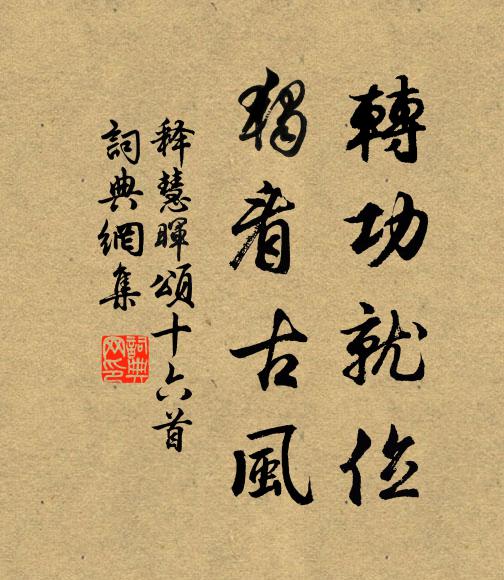 轉功就位
獨看古風
释慧暉頌十六首
詞典網集
詞典网印